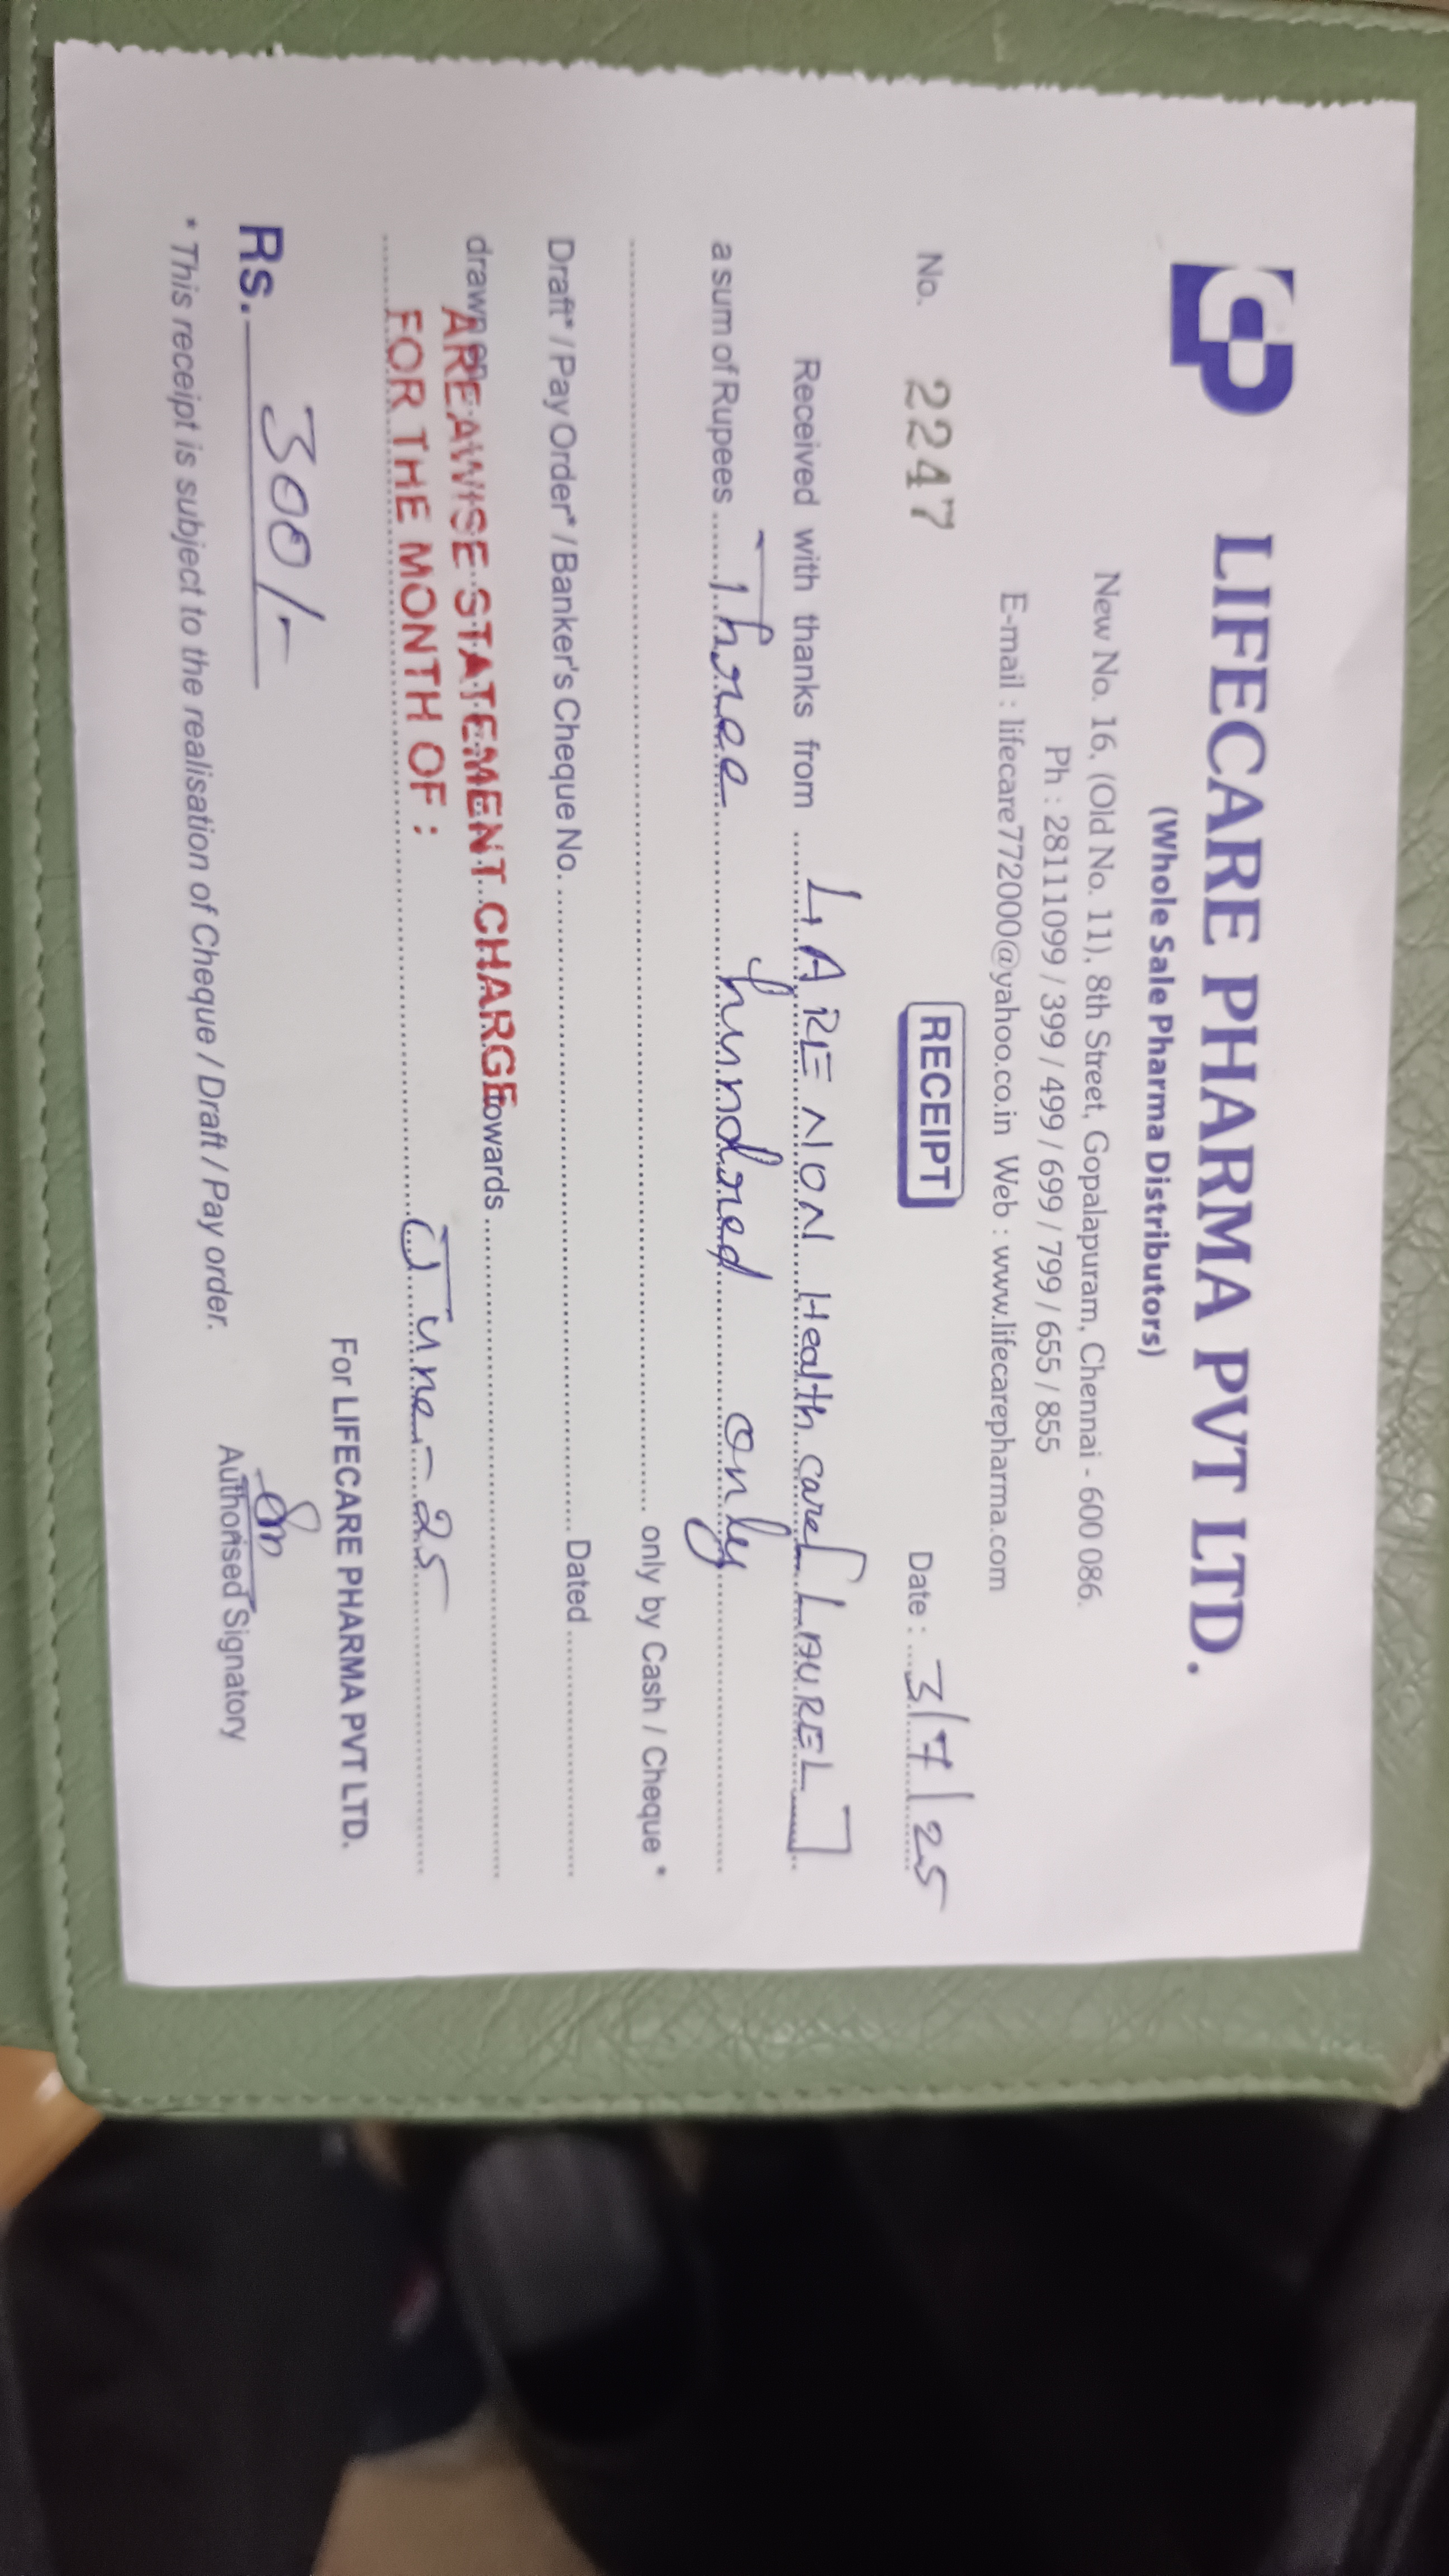 LIFECARE PHARMA PVT LTD.
(Whole Sale Pharma Distributors)
New No. 16, (Old No. 11), 8th Street, Gopalapuram, Chennai - 600 086.
Ph : 28111099 / 399 / 499 / 699 / 799 / 655 / 855
E-mail : lifecare772000@yahoo.co.in Web : www.lifecarepharma.com
No. 2247 RECEIPT Date : 3/7/25
Received with thanks from LARENON Health care [LAUREL]
a sum of Rupees Three hundred only
only by Cash / Cheque *
Draft* / Pay Order* / Banker's Cheque No. Dated
drawn on AREAWISE STATEMENT CHARGE towards
FOR THE MONTH OF : June - 25
For LIFECARE PHARMA PVT LTD.
Rs. 300/-
Authorised Signatory
* This receipt is subject to the realisation of Cheque / Draft / Pay order.